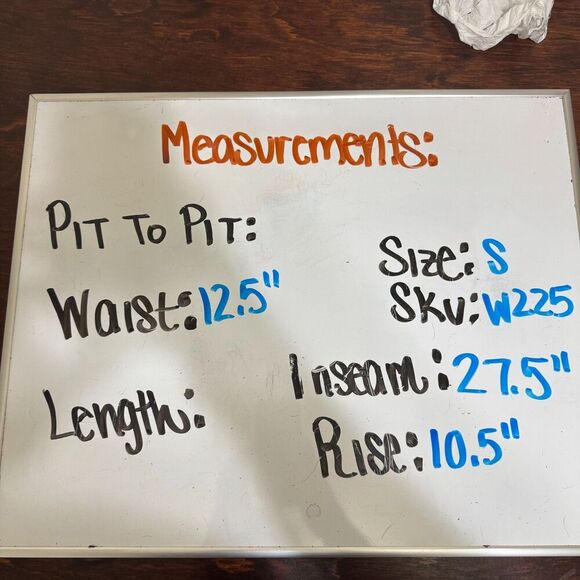 Measurements:
Pit To Pit:
Size: S
Waist: 12.5"
SKU: W225
Inseam: 27.5"
Length:
Rise: 10.5"